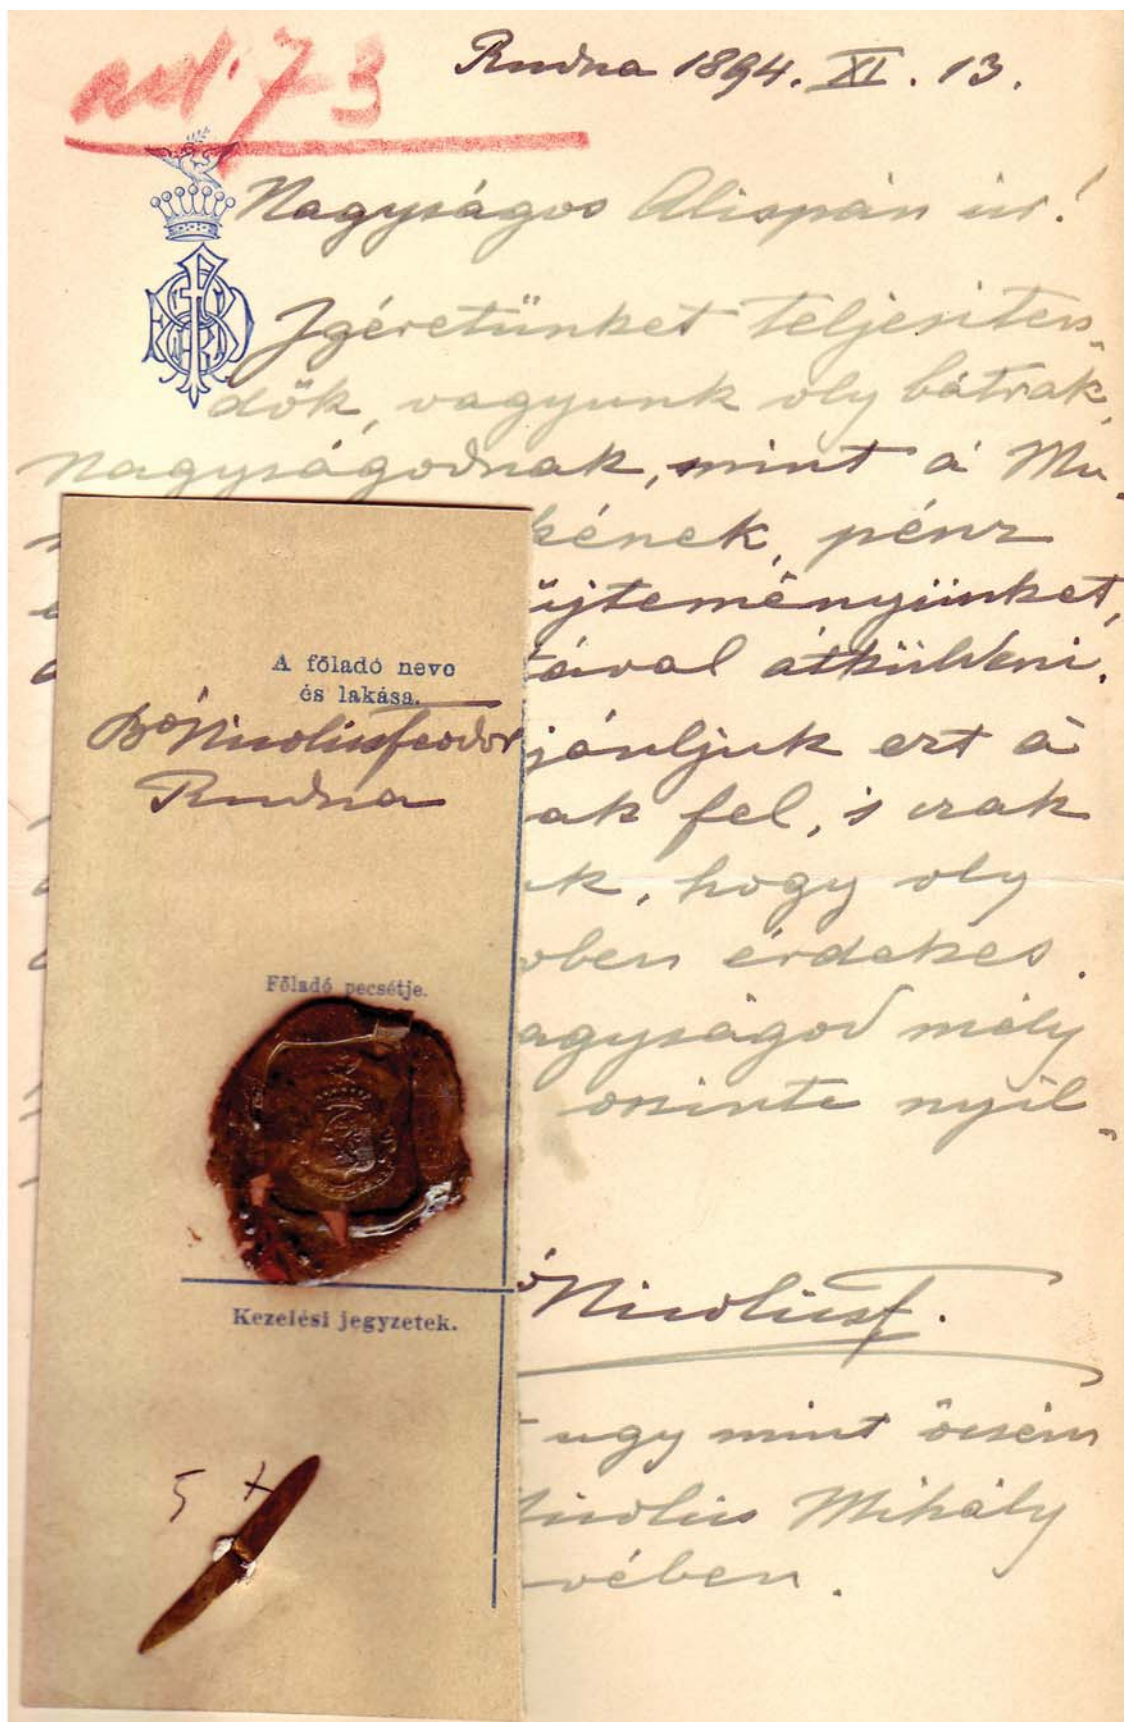 ad. 73
Rudna 1894. XI. 13.
Nagyságos Alispán úr!
Igéretünket teljesiten-
dők, vagyunk oly bátrak,
Nagyságodnak, mint á Mu-
kének, pénz
űjteményünket,
ával átküldeni.
jánljuk ezt á
ak fel, s csak
uk, hogy oly
oben érdekes.
agyságod mély
őszinte nyil-
Nicolicsf.
ugy mint öcsém
Nicolics Mihály
vében.
A föladó neve
és lakása.
Bó Nicolicsfeodor
Rudna
Föladó pecsétje.
Kezelési jegyzetek.
5 x